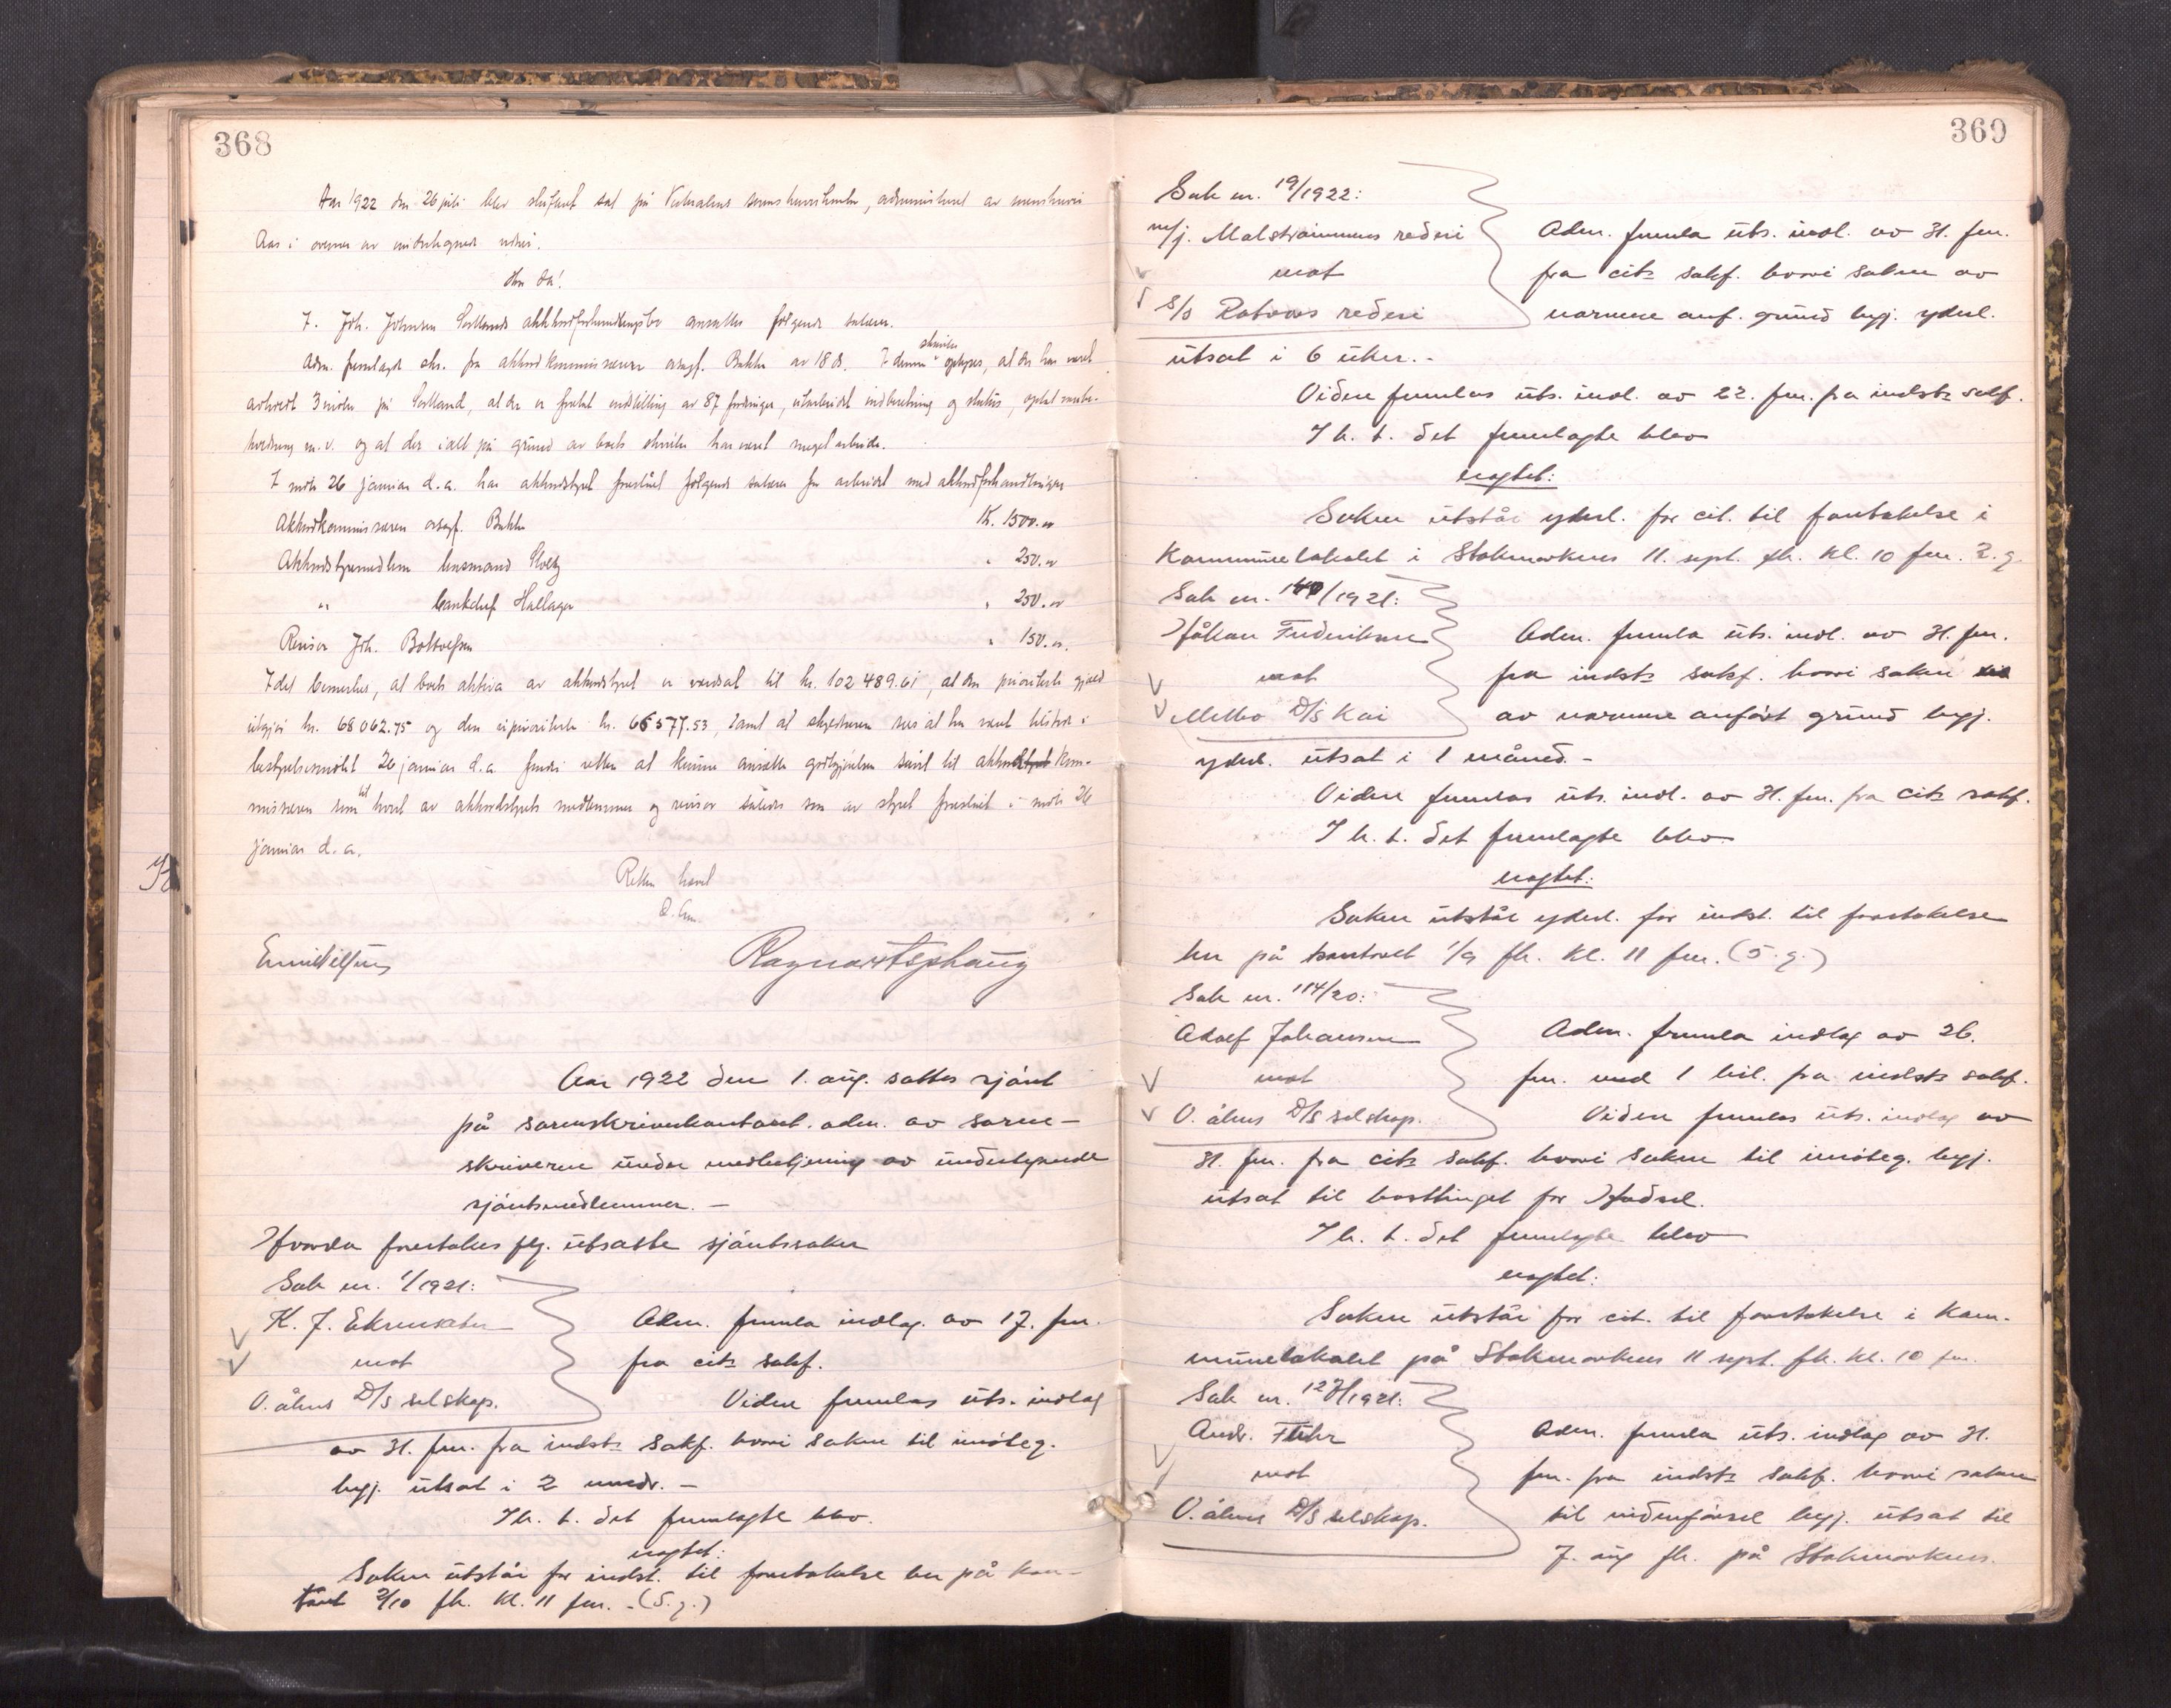 368
Aar 1922 den 26 juli blev skifteret sat på Vesteraalens sorenskriverkontor, administreret av sorenskriver
Aas i overvær av undertegnede vidner.
Hvor da:
I Joh. Johnsen Sortlands akkordforhandlingsbo ansattes følgende salærer.
Adm. fremlagde skr. fra akkordkommissæren ovsagf. Bakke av 18 ds. I denne skrivelse oplyses, at der har været
avholdt 3 møter på Sortland, at der er foretat indstilling av 87 fordringer, utarbeidet indberetning og status, optat
m.v. og at der ialt på grund av boets størrelse har været meget arbeide.
I møte 26 januar d.a. har akkordstyret foreslået følgende salærer for arbeidet med akkordforhandlingen
Akkordkommissæren ovsagf. Bakke Kr. 1500.00
Akkordstyremedlem lensmand Holtz " 250.00
" bankchef Hallager " 250.00
Revisor Joh. Boltvolfsen " 150.00
I det bemerkes, at boets aktiva av akkordstyret er værdsat til kr. 102 489.61, at den prioriterte gjæld
utgjør kr. 68 062.75 og den uprioriterte kr. 66 577.53, samt at skyldneren sees at ha været tilstede i
bestyrelsesmøtet 26 januar d.a. finder retten at kunne ansætte godtgjørelsen såvel til akkordkom-
missæren som til hvert av akkordstyrets medlemmer og revisor således som av styret foreslået i møte 26
januar d.a.
Retten hævet
Emil Nilsen Ragnar Stephaug
Aar 1922 den 1. aug. sattes sjøret
på sorenskriverkontoret. adm. av soren-
skriveren under medbetjening av undertegnede
sjøretsmedlemmer. -
Hvorda foretokes flg. utsatte sjøretssaker
Sak nr. 1/1921:
K. J. Ekrensæter
mot
O. åkus D/S selskap.
Adm. fremla indlag. av 17. fm.
fra cits sakf.
Videre fremlas uts. indlag
av 31. fm. fra indsts sakf. hvori saken til imøteg.
begj. utsat i 2 mndr. -
I h. t. det fremlagte blev
eragtet:
Saken utstår for indst. til foretakelse her på kon-
toret 2/10 fk. kl. 11 fm. - (S. g.)
369
Sak nr. 19/1922:
m/j. Malstrømmens rederi
mot
S/S Rotværs rederi
Adm. fremla uts. indl. av 31. fm.
fra cits sakf. hvori saken av
nærmere anf. grund begj. yderl.
utsat i 6 uker. -
Videre fremlas uts. indl. av 22. fm. fra indsts sakf.
I h. t. det fremlagte blev
eragtet:
Saken utstår yderl. for cit. til foretakelse i
Kommunelokalet i Stokmarknes 11. sept. fk. kl. 10 fm. 2. g.
Sak nr. 140/1921:
Håkon Frederiksen
mot
Melbo D/S Kai
Adm. fremla uts. indl. av 31. fm.
fra indsts sakf. hvori saken
av nærmere anført grund begj.
yderl. utsat i 1 måned. -
Videre fremlas uts. indl. av 31. fm. fra cits sakf.
I h. t. det fremlagte blev
eragtet:
Saken utstår yderl. for indst. til foretakelse
her på kontoret 1/9 fk. kl. 11 fm. (S. g.)
Sak nr. 114/20:
Adolf Johansen
mot
O. åkus D/S selskap.
Adm. fremla indlag av 26.
fm. med 1 bil. fra indsts sakf.
Videre fremlas uts. indlag av
31. fm. fra cits sakf. hvori saken til imøteg. begj.
utsat til høsttinget for Hadsel.
I h. t. det fremlagte blev
eragtet:
Saken utstår for cit. til foretakelse i kom-
munelokalet på Stokmarknes 11 sept. fk. kl. 10 fm.
Sak nr. 127/1921:
Andr. Führ
mot
O. åkus D/S selskap.
Adm. fremla uts. indlag av 31.
fm. fra indsts sakf. hvori saken
til vidneførsel begj. utsat til
7. aug fk. på Stokmarknes.